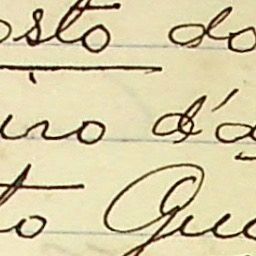 osto do
iro d'a
to Que